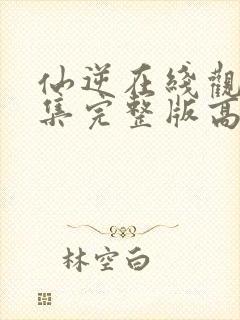 仙逆在綫觀
集完整版高
林空白